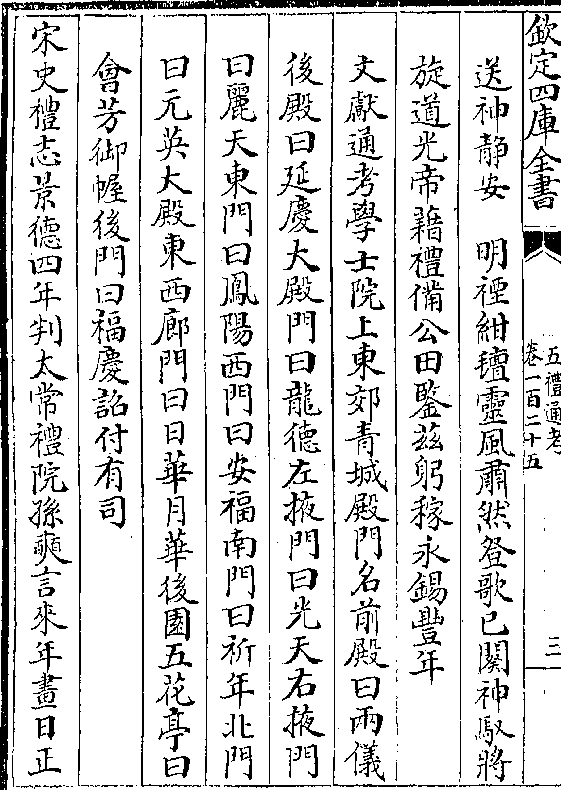 欽定四庫全書
五禮通考
卷一百二十五
三
送神静安　明禋紺䡖靈風肅然登歌已闋神馭將
旋道光帝藉禮備公田鑒兹躬稼永錫豐年
文獻通考學士院上東郊青城殿門名前殿曰兩儀
後殿曰延慶大殿門曰龍德左掖門曰光天右掖門
曰麗天東門曰鳳陽西門曰安福南門曰祈年北門
曰元英大殿東西廊門曰日華月華後園五花亭曰
會芳御幄後門曰福慶詔付有司
宋史禮志景德四年判太常禮院孫奭言來年畫日正